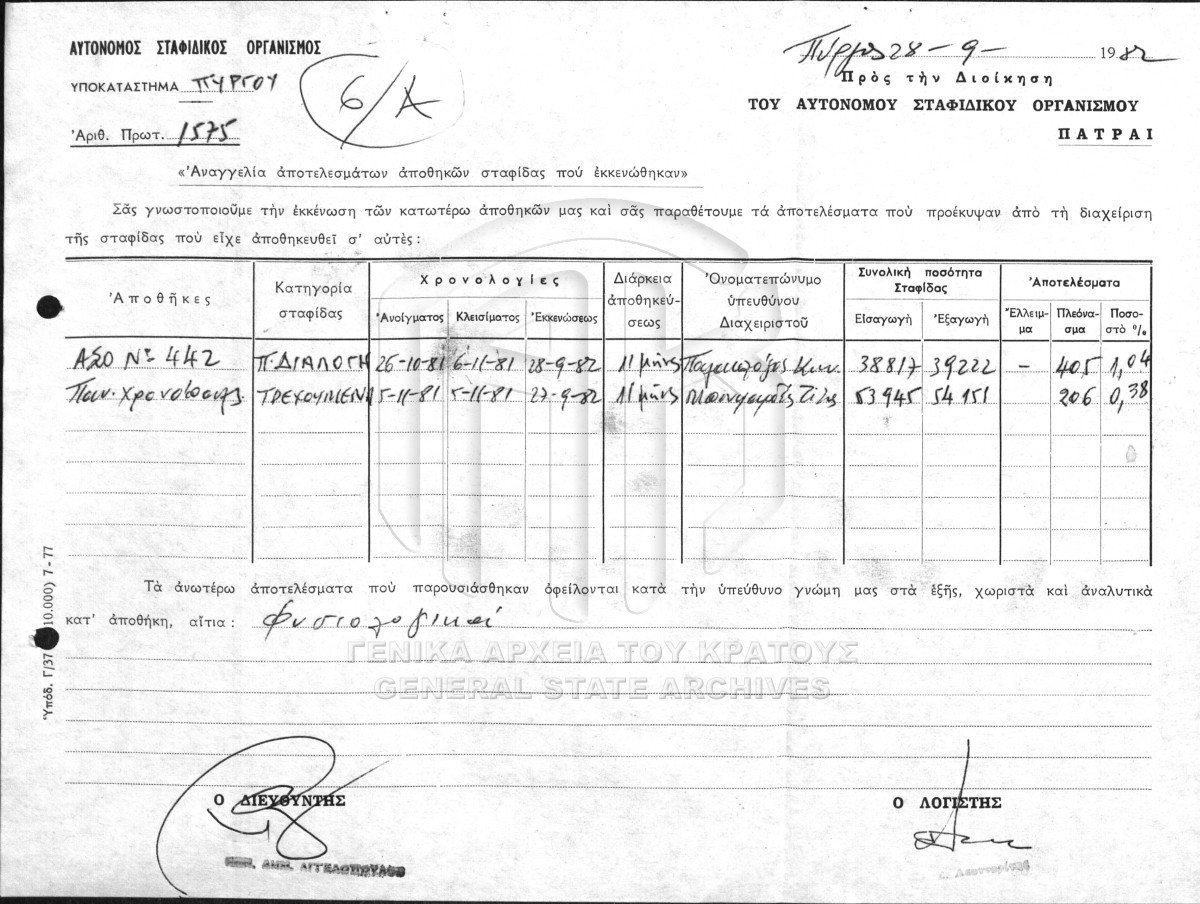 ΑΥΤΟΝΟΜΟΣ ΣΤΑΦΙΔΙΚΟΣ ΟΡΓΑΝΙΣΜΟΣ
ΥΠΟΚΑΤΑΣΤΗΜΑ ΠΥΡΓΟΥ
Ἀριθ. Πρωτ. 1575
6/Α
Πύργος 28-9-1982
Πρὸς τὴν Διοίκηση
ΤΟΥ ΑΥΤΟΝΟΜΟΥ ΣΤΑΦΙΔΙΚΟΥ ΟΡΓΑΝΙΣΜΟΥ
ΠΑΤΡΑΙ
«Ἀναγγελία ἀποτελεσμάτων ἀποθηκῶν σταφίδας πού ἐκκενώθηκαν»
Σᾶς γνωστοποιοῦμε τὴν ἐκκένωση τῶν κατωτέρω ἀποθηκῶν μας καὶ σᾶς παραθέτουμε τά ἀποτελέσματα πού προέκυψαν ἀπὸ τὴ διαχείριση
τῆς σταφίδας πού εἶχε ἀποθηκευθεῖ σ' αὐτές:
Ἀποθῆκες Κατηγορία σταφίδας Χρονολογίες Διάρκεια ἀποθηκεύσεως Ὀνοματεπώνυμο ὑπευθύνου Διαχειριστοῦ Συνολικὴ ποσότητα Σταφίδας Ἀποτελέσματα
Ἀνοίγματος Κλεισίματος Ἐκκενώσεως Εἰσαγωγὴ Ἐξαγωγὴ Ἔλλειμμα Πλεόνασμα Ποσοστὸ %
ΑΣΟ Νο 442 Π.ΔΙΑΛΟΓΗ 26-10-81 6-11-81 28-9-82 11 μῆνες 38817 39222 - 405 1,04
Παν. ΤΡΕΧΟΥΜΕΝΗ 5-11-81 5-11-81 27-9-82 11 μῆνες 53945 54151 206 0,38
Τὰ ἀνωτέρω ἀποτελέσματα πού παρουσιάσθηκαν ὀφείλονται κατὰ τὴν ὑπεύθυνο γνώμη μας στὰ ἑξῆς, χωριστὰ καὶ ἀναλυτικὰ
κατ' ἀποθήκη, αἴτια: Φυσιολογικαί
ΓΕΝΙΚΑ ΑΡΧΕΙΑ ΤΟΥ ΚΡΑΤΟΥΣ
GENERAL STATE ARCHIVES
Ὑπόδ. Γ/37 10.000) 7-77
Ο ΔΙΕΥΘΥΝΤΗΣ
Ο ΛΟΓΙΣΤΗΣ
ΔΗΜ. ΑΓΓΕΛΟΠΟΥΛΟΣ